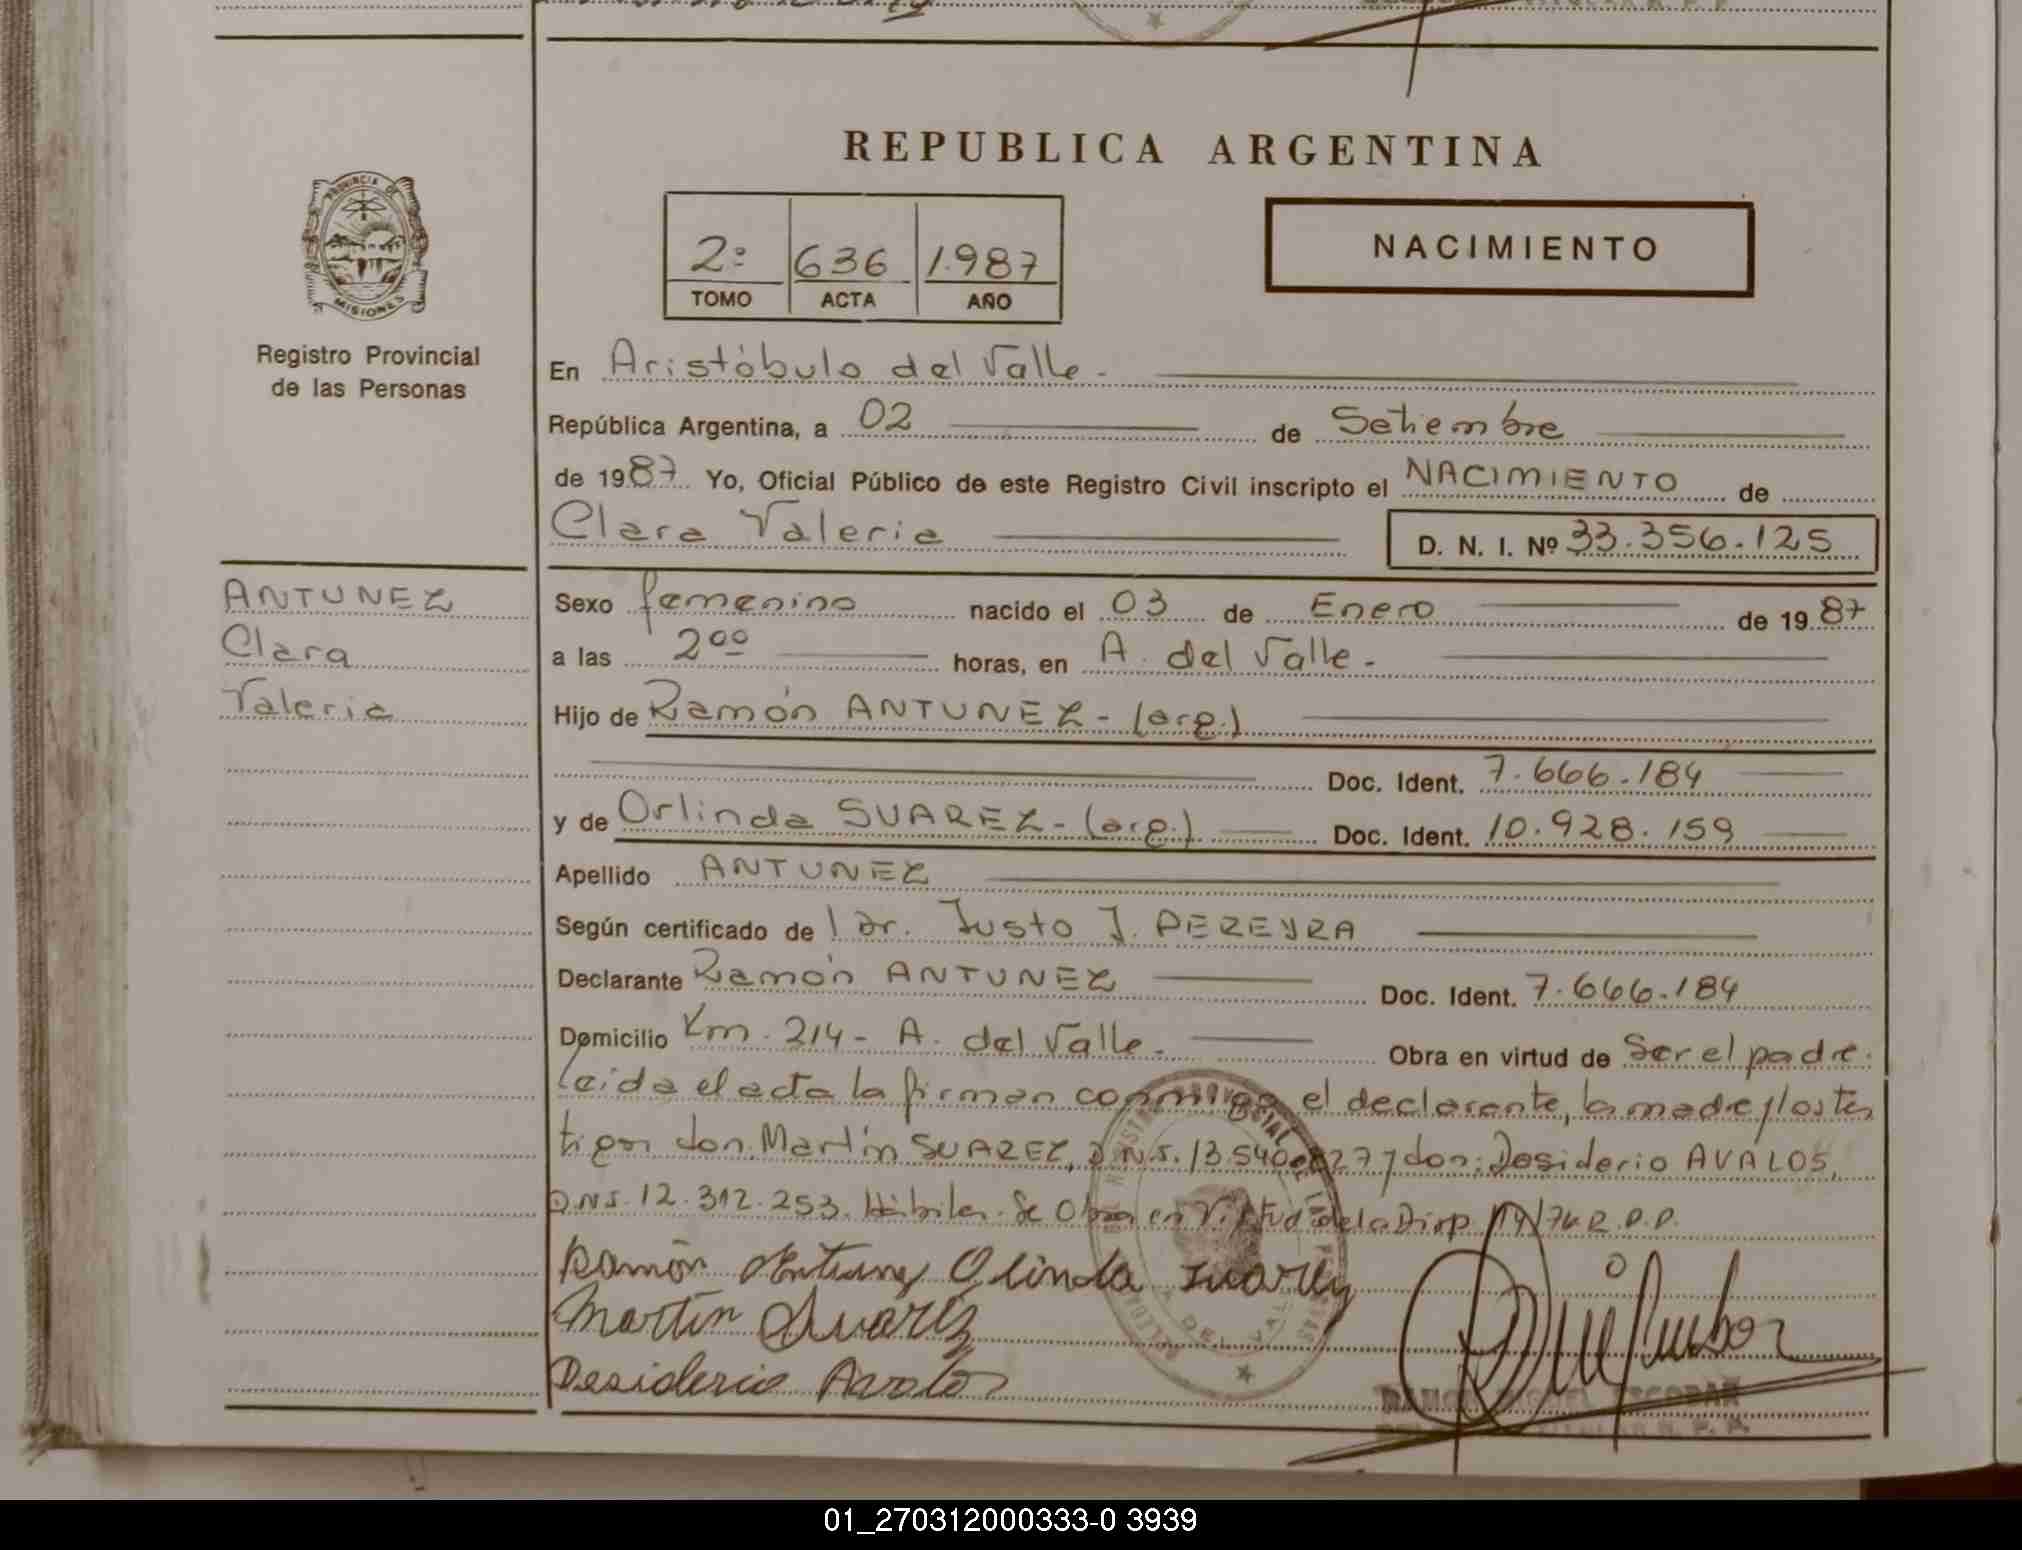 REPUBLICA ARGENTINA
PROVINCIA DE
MISIONES
Registro Provincial
de las Personas
2º 636 1.987
TOMO ACTA AÑO
NACIMIENTO
En Aristóbulo del Valle.
República Argentina, a 02 de Setiembre
de 1987. Yo, Oficial Público de este Registro Civil inscripto el NACIMIENTO de
Clara Valeria D. N. I. Nº 33.356.125
ANTUNEZ
Clara
Valeria
Sexo femenino nacido el 03 de Enero de 1987
a las 2⁰⁰ horas, en A. del Valle.
Hijo de Ramón ANTUNEZ - (arg.)
Doc. Ident. 7.666.184
y de Orlinda SUAREZ - (arg.) Doc. Ident. 10.928.159
Apellido ANTUNEZ
Según certificado de l Dr. Justo J. PEREYRA
Declarante Ramón ANTUNEZ Doc. Ident. 7.666.184
Domicilio Km. 214 - A. del Valle. Obra en virtud de Ser el padre.
leida el acta la firman conmigo el declarante, la madre y los tes
tigos don: Martín SUAREZ, D.N.I. 13.540. 277 don: Desiderio AVALOS,
D.N.I. 12.312.253. Hábiles. Se Obra en Virtud de la Disp. R.P.P.
Ramón Antunez Olinda Suarez
Martín Suarez
Desiderio Avalos
RAMON ESCOBAR
TITULAR R. P. P.
01_270312000333-0 3939